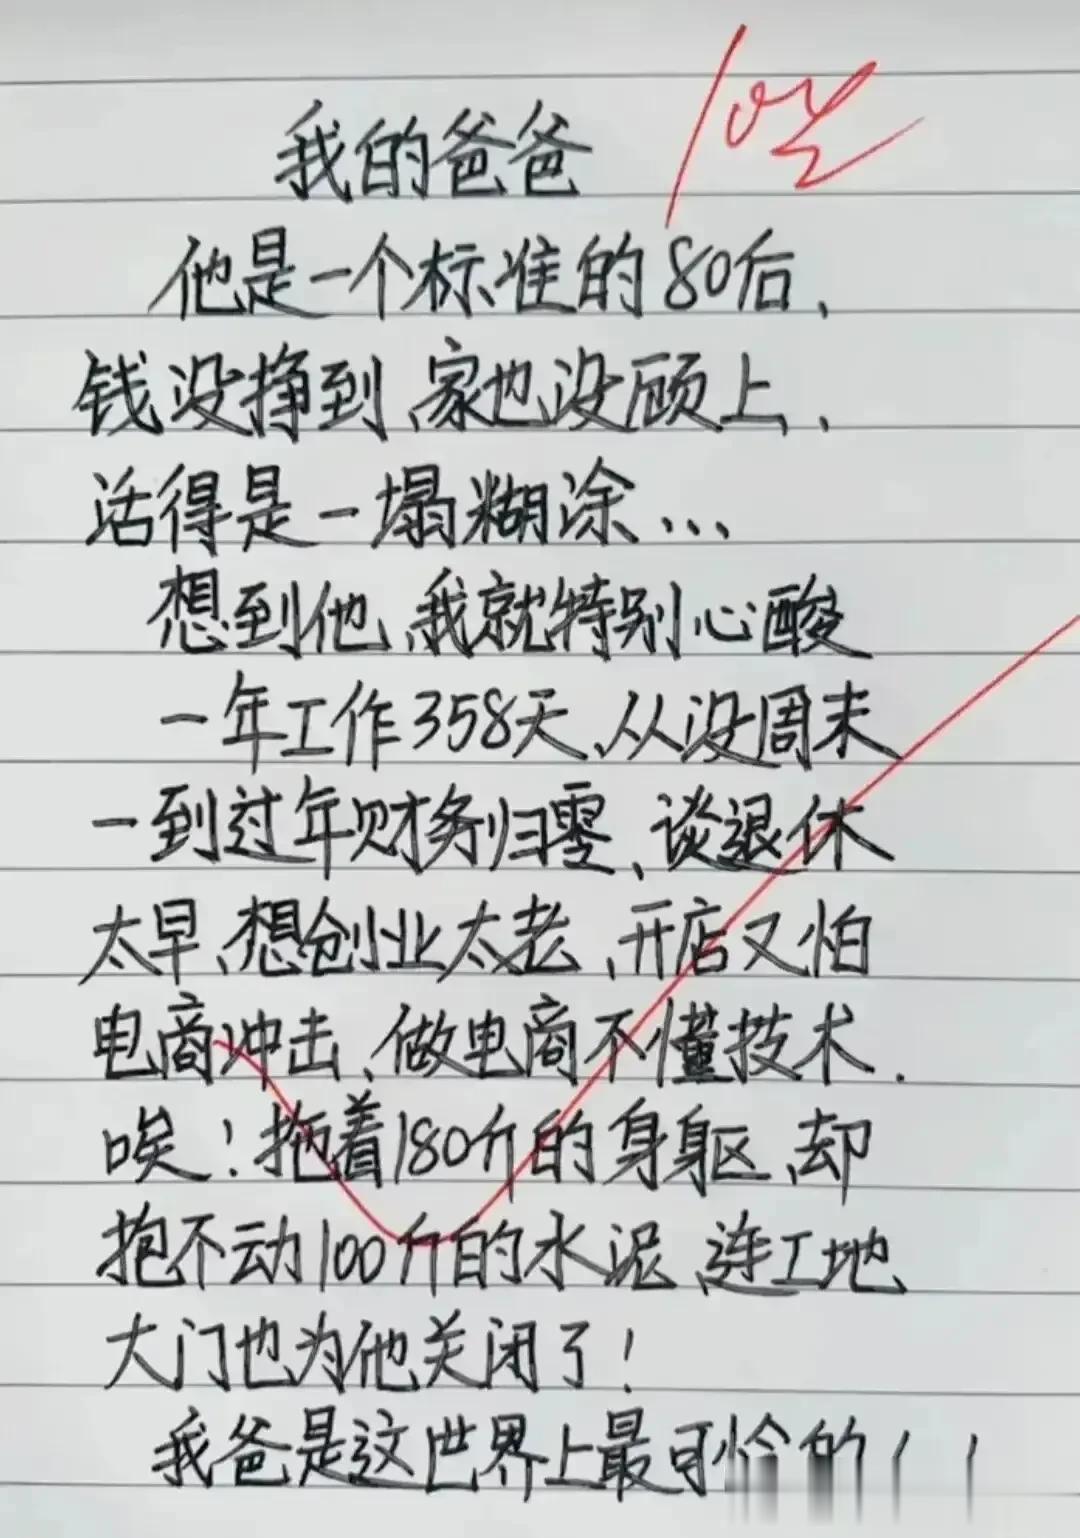 我的爸爸
他是一个标准的80后、
钱没挣到、家也没顾上、
活得是一塌糊涂...
想到他、我就特别心酸
一年工作358天、从没周末
一到过年财务归零、谈退休
太早、想创业太老、开店又怕
电商冲击、做电商不懂技术.
唉！拖着180斤的身躯、却
抱不动100斤的水泥、连工地
大门也为他关闭了！
我爸是这世界上最可怜的